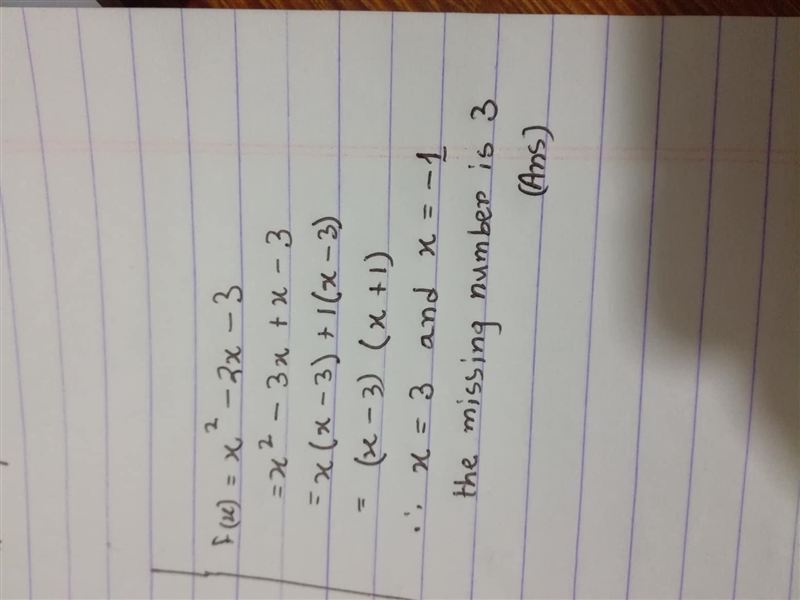 f(x) = x² - 2x - 3
= x² - 3x + x - 3
= x(x-3)+1(x-3)
= (x-3) (x+1)
∴ x = 3 and x = -1
the missing number is 3
(Ans)